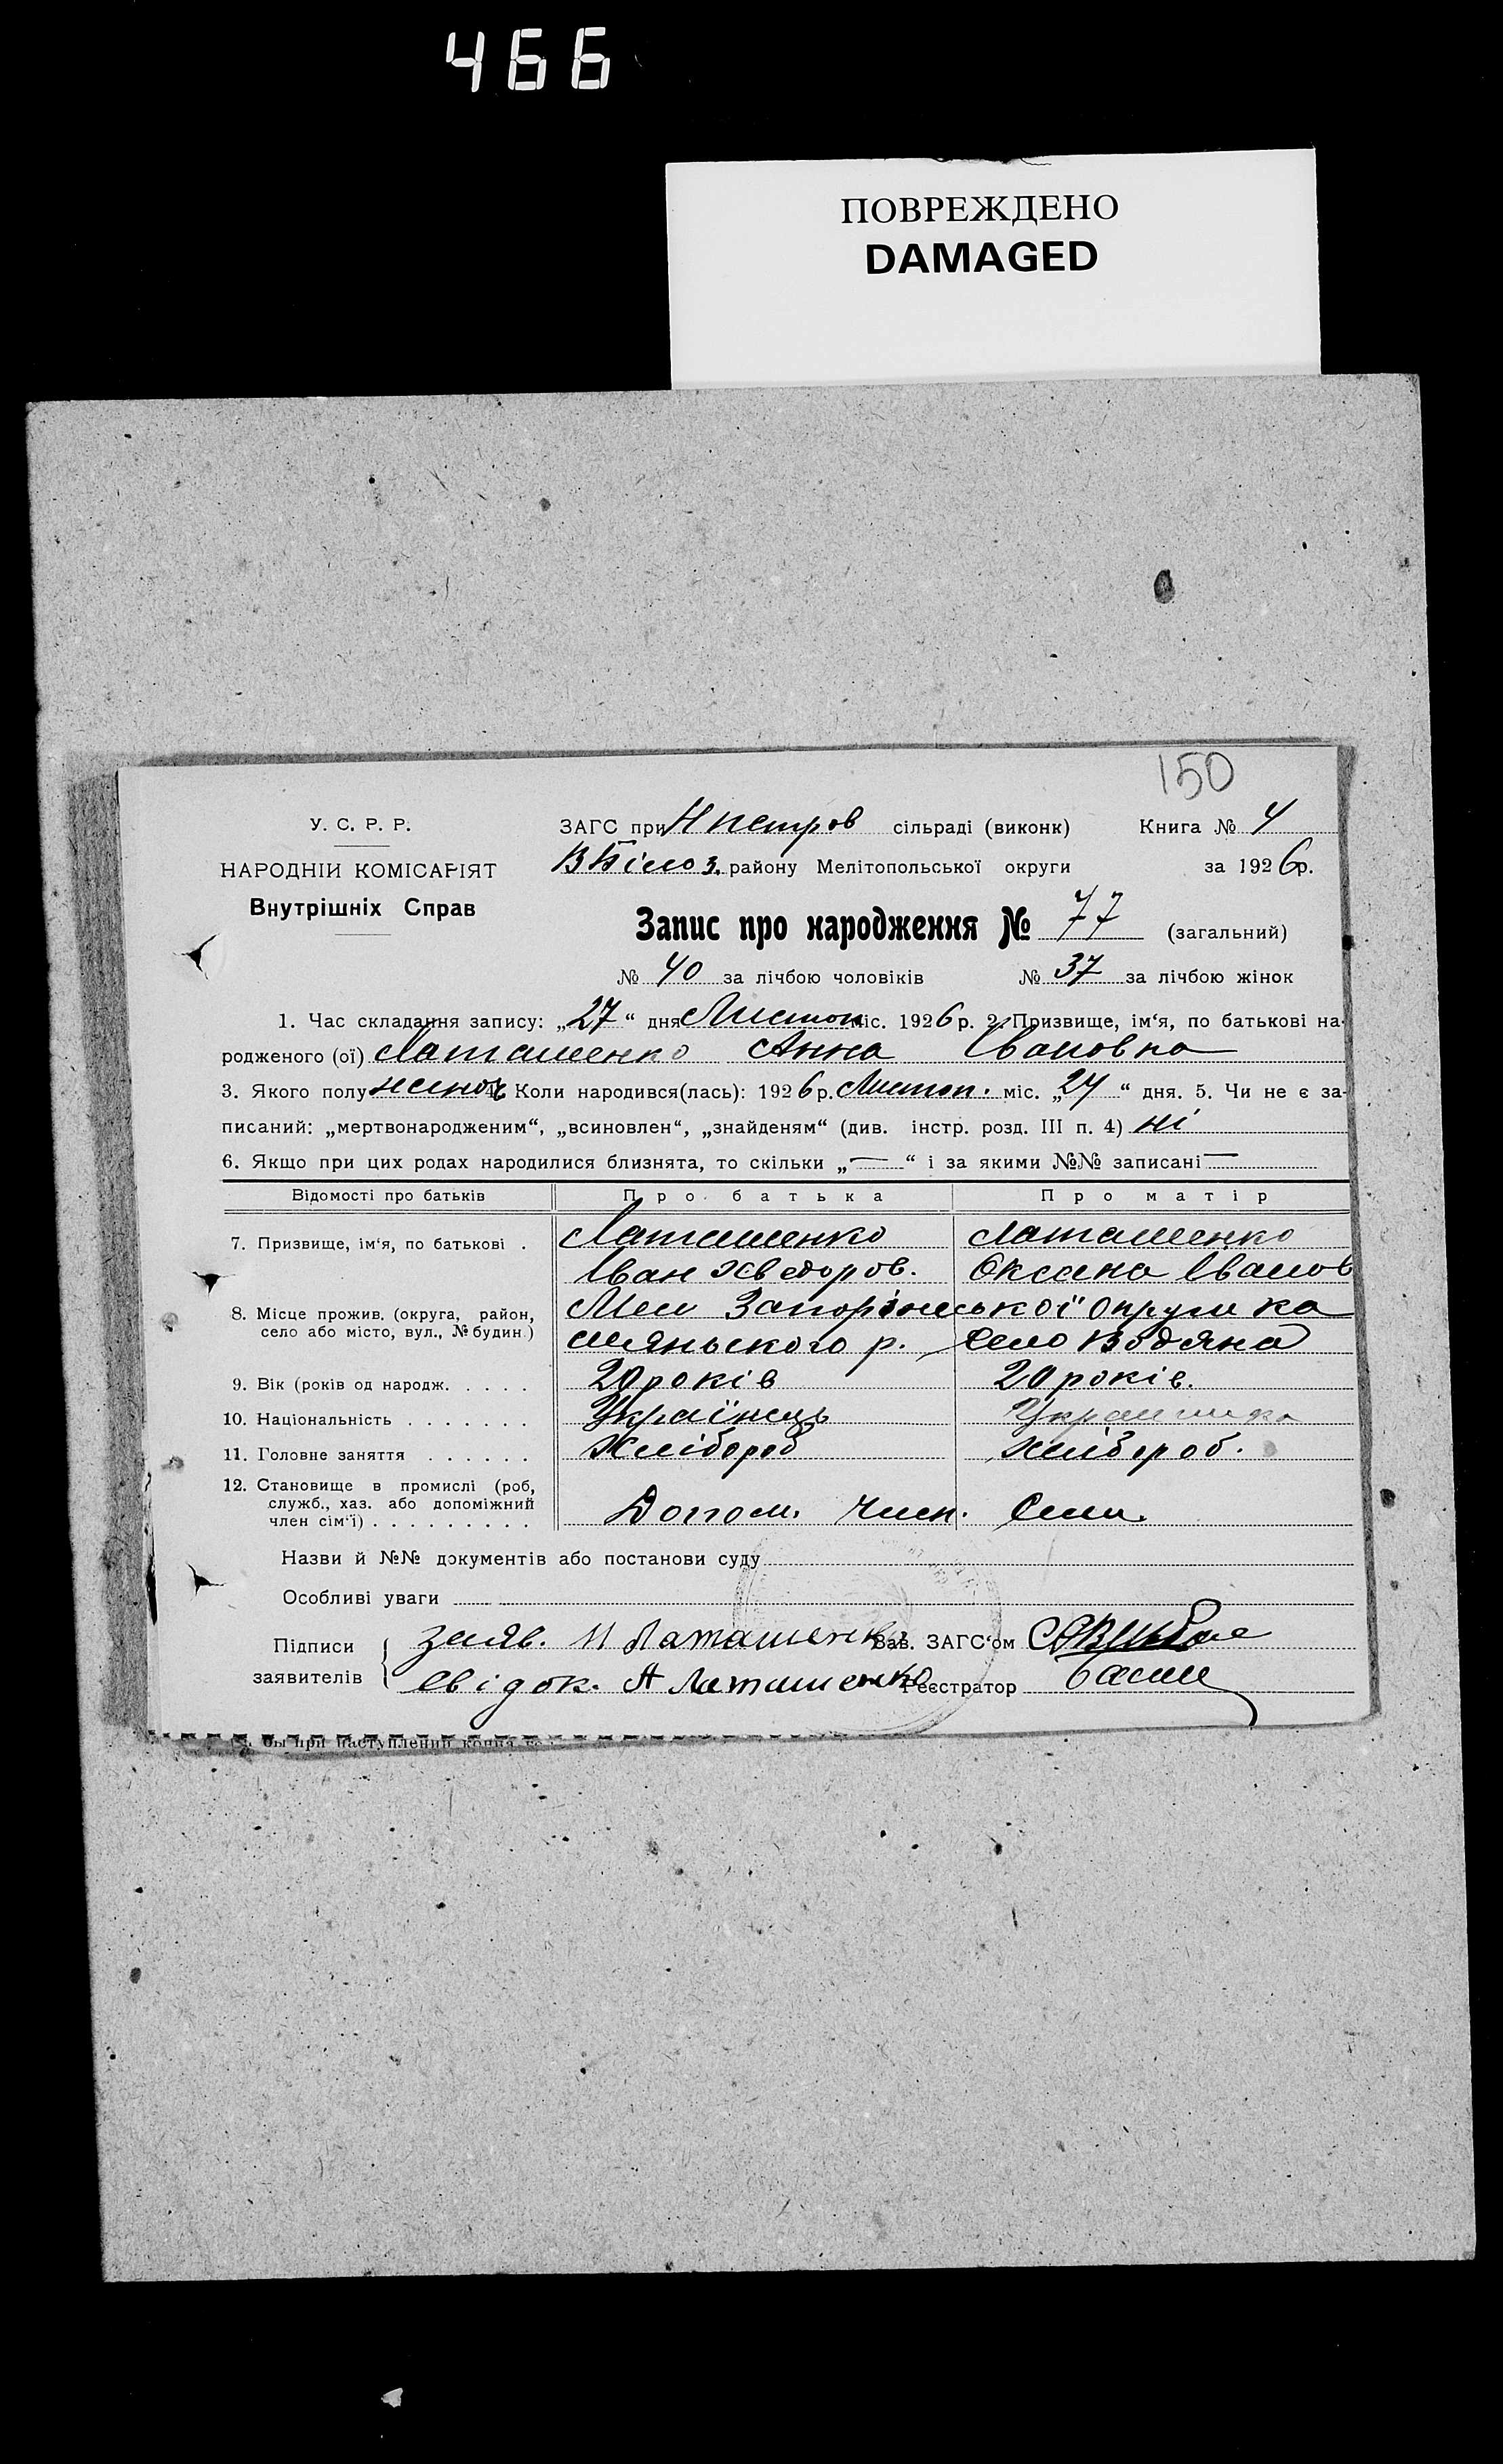 466
ПОВРЕЖДЕНО
DAMAGED
150
У. С. Р. Р.
НАРОДНІЙ КОМІСАРІЯТ
Внутрішніх Справ
ЗАГС при Нпетров сільраді (виконк) Книга № 4
ВБілоз. району Мелітопольської округи за 1926р.
Запис про народження № 77 (загальний)
№ 40 за лічбою чоловіків № 37 за лічбою жінок
1. Час складання запису: „27“ дня Листоп міс. 1926 р. 2. Призвище, ім‘я, по батькові на-
родженого (ої) Латашенко Анна Івановна
3. Якого полу жіноч 4. Коли народився(лась): 1926 р. Листоп. міс. „24“ дня. 5. Чи не є за-
писаний: „мертвонародженим“, „всиновлен“, „знайденям“ (див. інстр. розд. III п. 4) ні
6. Якщо при цих родах народилися близнята, то скільки „—“ і за якими №№ записані —
Відомості про батьків Про батька Про матір
7. Призвище, ім‘я, по батькові . Латашенко Латашенко
Іван Хведоров. Оксана Іванов
8. Місце прожив. (округа, район,
село або місто, вул., № будин.)
Запоріжської Округи Ка
мяньского р. Село Водяна
9. Вік (років од народж. . . . . 20 років 20 років.
10. Національність . . . . . . . Українець Украинка
11. Головне заняття . . . . . . Хлібороб Хлібороб.
12. Становище в промислі (роб,
служб., хаз. або допоміжний
член сім‘ї) . . . . . . . . . Допом. Член. Сем.
Назви й №№ документів або постанови суду
Особливі уваги
Підписи
заявителів
заяв. И Латашенко Зав. ЗАГС‘ом
свідок. А Латашенко Реєстратор
бы при наступлении конца